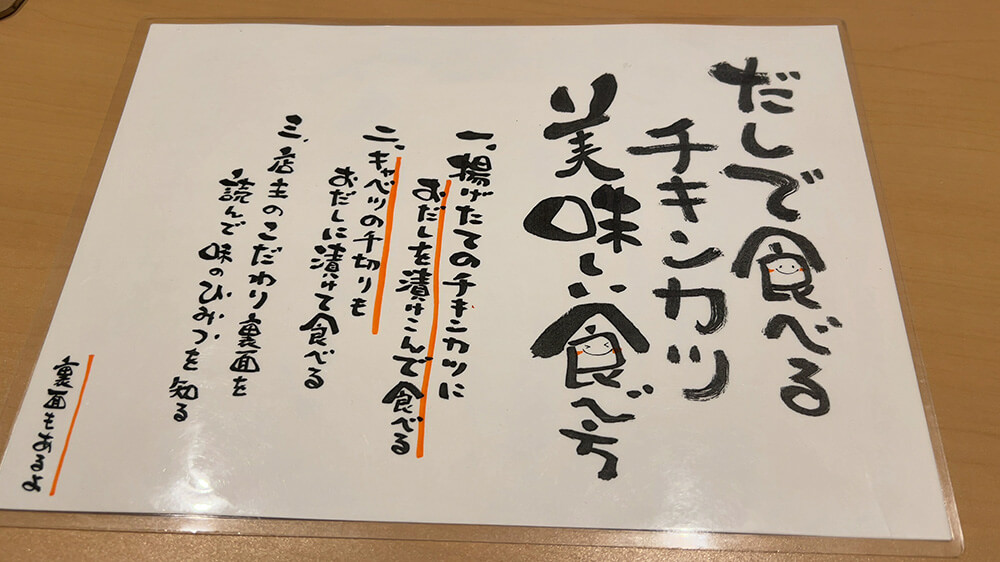 だしで食べる
チキンカツ
美味しい食べ方
一、揚げたてのチキンカツに
おだしを漬けこんで食べる
二、キャベツの千切りも
おだしに漬けて食べる
三、店主のこだわり裏面を
読んで味のひみつを知る
裏面もあるよ